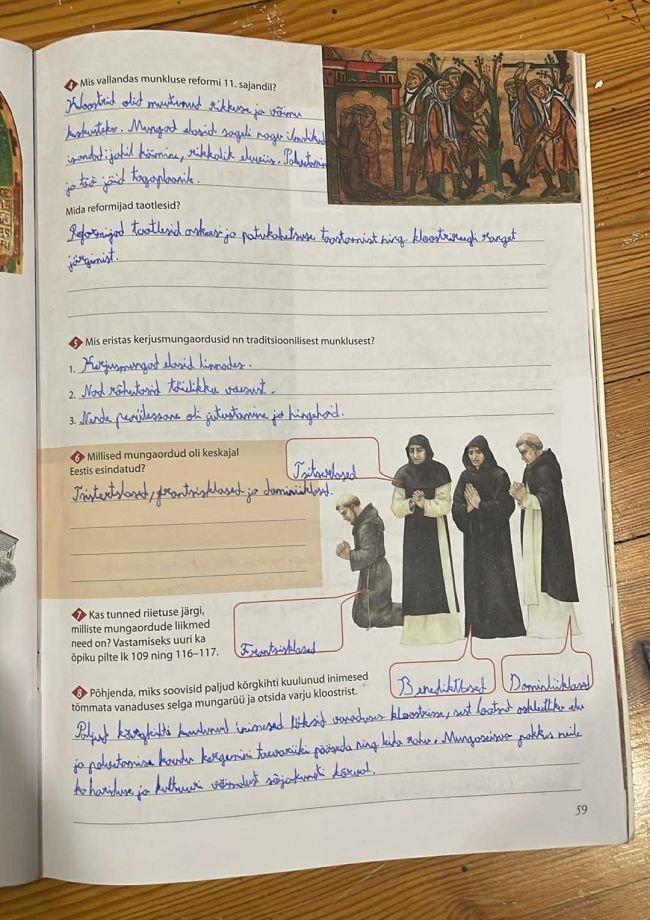 4 Mis vallandas munkluse reformi 11. sajandil?
Kloostrid olid muutunud rikkuse ja võimu
keskusteks. Mungad elasid sageli nagu ilmalikud
isandad: jahil käimine, rikkalik eluviis. Palvetamine
ja töö jäid tagaplaanile.
Mida reformijad taotlesid?
Reformijad taotlesid askeesi ja patukahetsuse taastamist ning kloostrireegli ranget
järgimist.
5 Mis eristas kerjusmungaordusid nn traditsioonilisest munklusest?
1. Kerjusmungad elasid linnades.
2. Nad rõhutasid täielikku vaesust.
3. Nende peaülesanne oli jutlustamine ja hingehoid.
6 Millised mungaordud oli keskajal
Eestis esindatud?
Tsistertslased, frantsisklased ja dominiiklased.
Tsistersclased
7 Kas tunned riietuse järgi,
milliste mungaordude liikmed
need on? Vastamiseks uuri ka
õpiku pilte lk 109 ning 116–117.
Frantsisklased
Benediktlased
Dominiiklased
8 Põhjenda, miks soovisid paljud kõrgkihti kuulunud inimesed
tõmmata vanaduses selga mungarüü ja otsida varju kloostrist.
Paljud kõrgkihti kuulunud inimesed läksid vanaduses kloostrisse, sest lootsid askeetliku elu
ja palvetamise kaudu kergemini taevariiki pääseda ning leida rahu. Mungaseisus pakkus neile
ka hariduse ja kultuuri võimalust sõjakunsti kõrval.
59